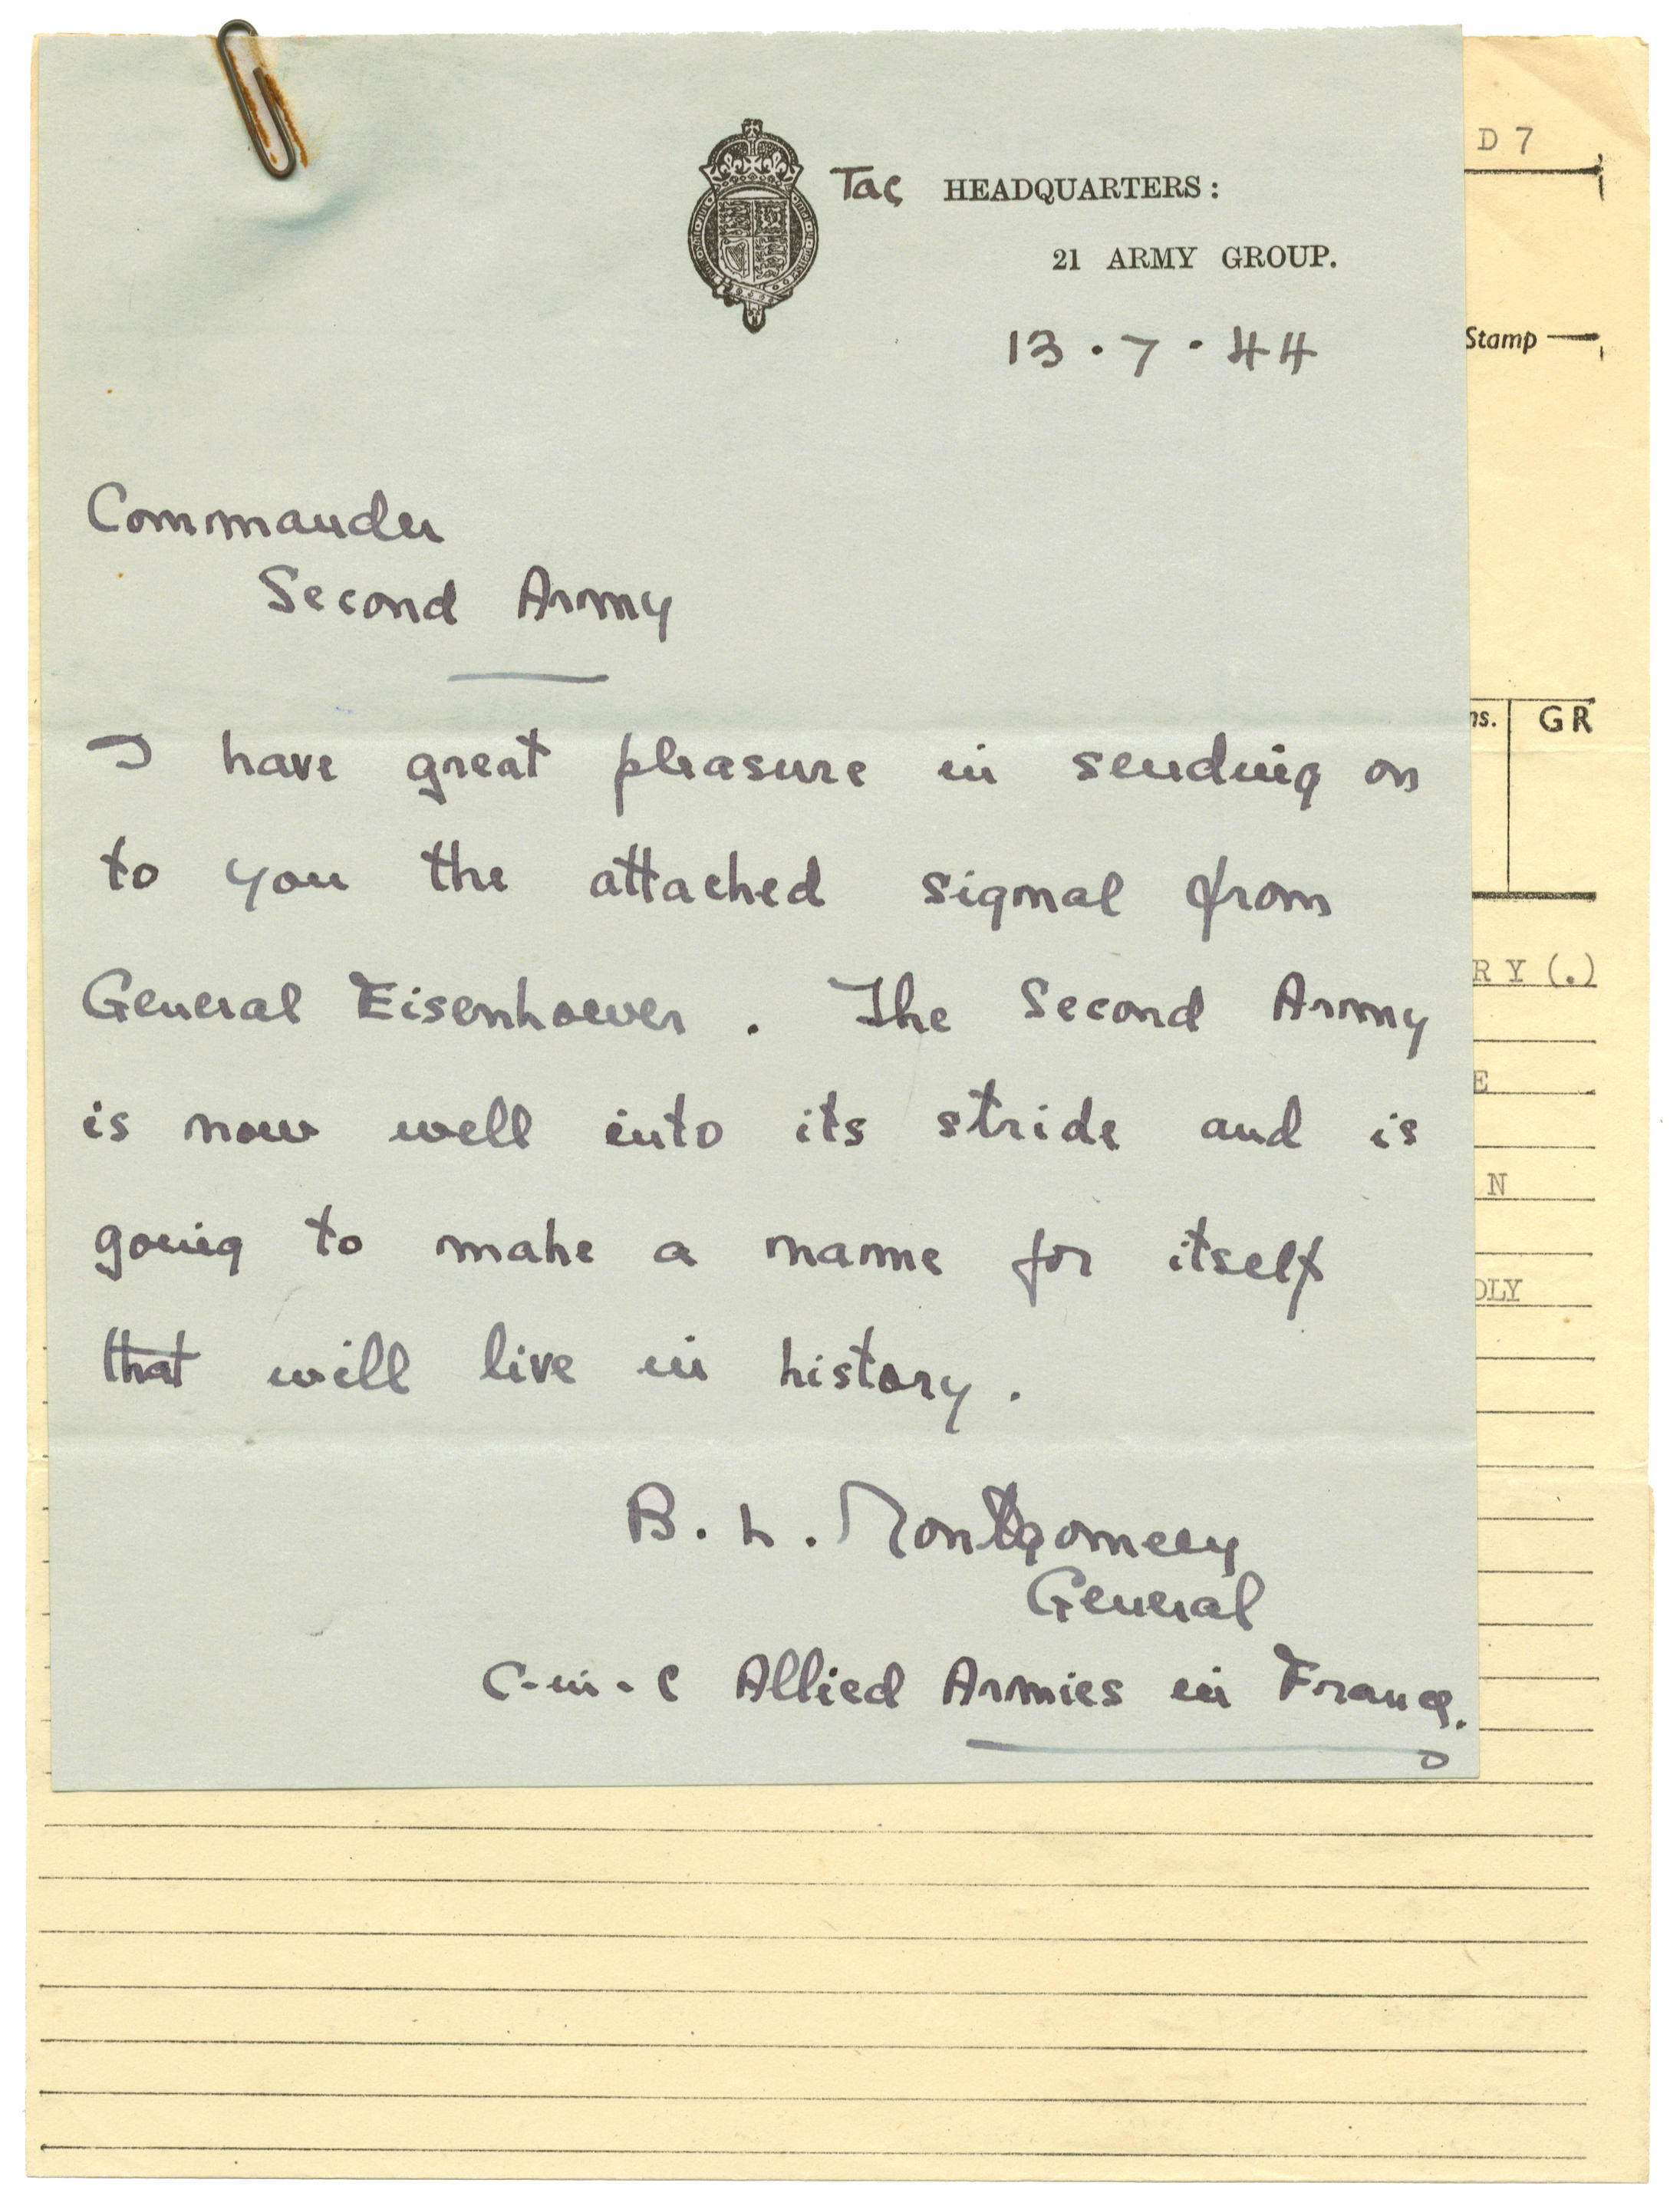 D 7
Tac HEADQUARTERS :
21 ARMY GROUP.
13 . 7 . 44
Stamp
Commander
Second Army
ns. GR
I have great pleasure in sending on
to you the attached signal from
RY (.)
General Eisenhower . The Second Army
E
is now well into its stride and is
N
going to make a name for itself
DLY
that will live in history .
B. L. Montgomery
General
C-in-C Allied Armies in France.